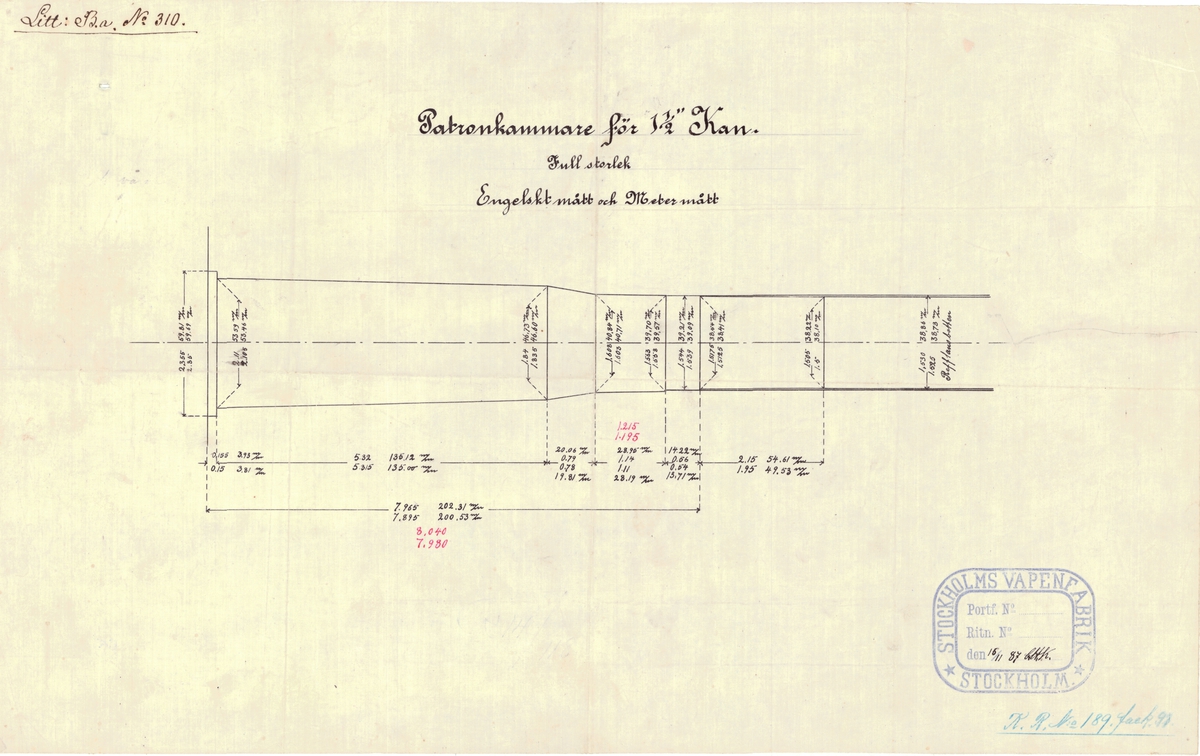 Litt: B.a. No 310.
Patronkammare för 1½" Kan.
Full storlek
Engelskt mått och Meter mått
2,355 59.81 m/m
2.35 59.69 m/m
2.11 53.59 m/m
53.46 m/m
1.84 46.73 m/m
1.835 46.60 m/m
1.608 40.84 m/m
1.603 40.71 m/m
1.563 39.70 m/m
1.558 39.57 m/m
1.544 39.21 m/m
1.539 39.09 m/m
1.5175 38.54 m/m
1.5125 38.41 m/m
1.505 38.22 m/m
1.5 38.10 m/m
1.530 38.86 m/m
1.525 38.73 m/m
Rafflans botten
1.215
1.195
0.155 3.93 m/m
0.15 3.81 m/m
5.32 135.12 m/m
5.315 135.00 m/m
20.06 m/m
0.79
0.78
19.81 m/m
28.95 m/m
1.14
1.11
28.19 m/m
14.22 m/m
0.56
0.54
13.71 m/m
2.15 54.61 m/m
1.95 49.53 m/m
7.965 202.31 m/m
7.895 200.53 m/m
8.040
7.930
STOCKHOLMS VAPENFABRIK
Portf. No
Ritn. No
den 15/11 87
STOCKHOLM.
K. R. No 189. fack.